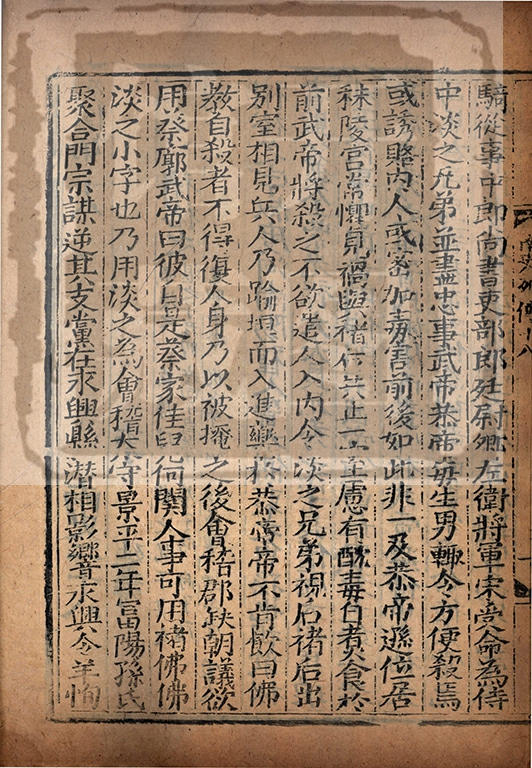 騎從事中郎尚書吏部郎廷尉卿左衛將軍宋受命為侍
中淡之兄弟並盡忠事武帝恭帝每生男輙令方便殺焉
或誘賂內人或密加毒害前後如此非一及恭帝遜位居
秣陵宮常懼見禍與褚后共止一室慮有酖毒自煑食於
前武帝將殺之不欲遣人入內令淡之兄弟視后褚后出
別室相見兵人乃踰垣而入進藥於恭帝帝不肯飲曰佛
教自殺者不得復人身乃以被掩之後會稽郡缺朝議欲
用蔡廓武帝曰彼自是蔡家佳兒何關人事可用褚佛佛
淡之小字也乃用淡之為會稽太守景平二年富陽孫氏
聚合門宗謀逆其支黨在永興縣潛相影響永興令羊恂